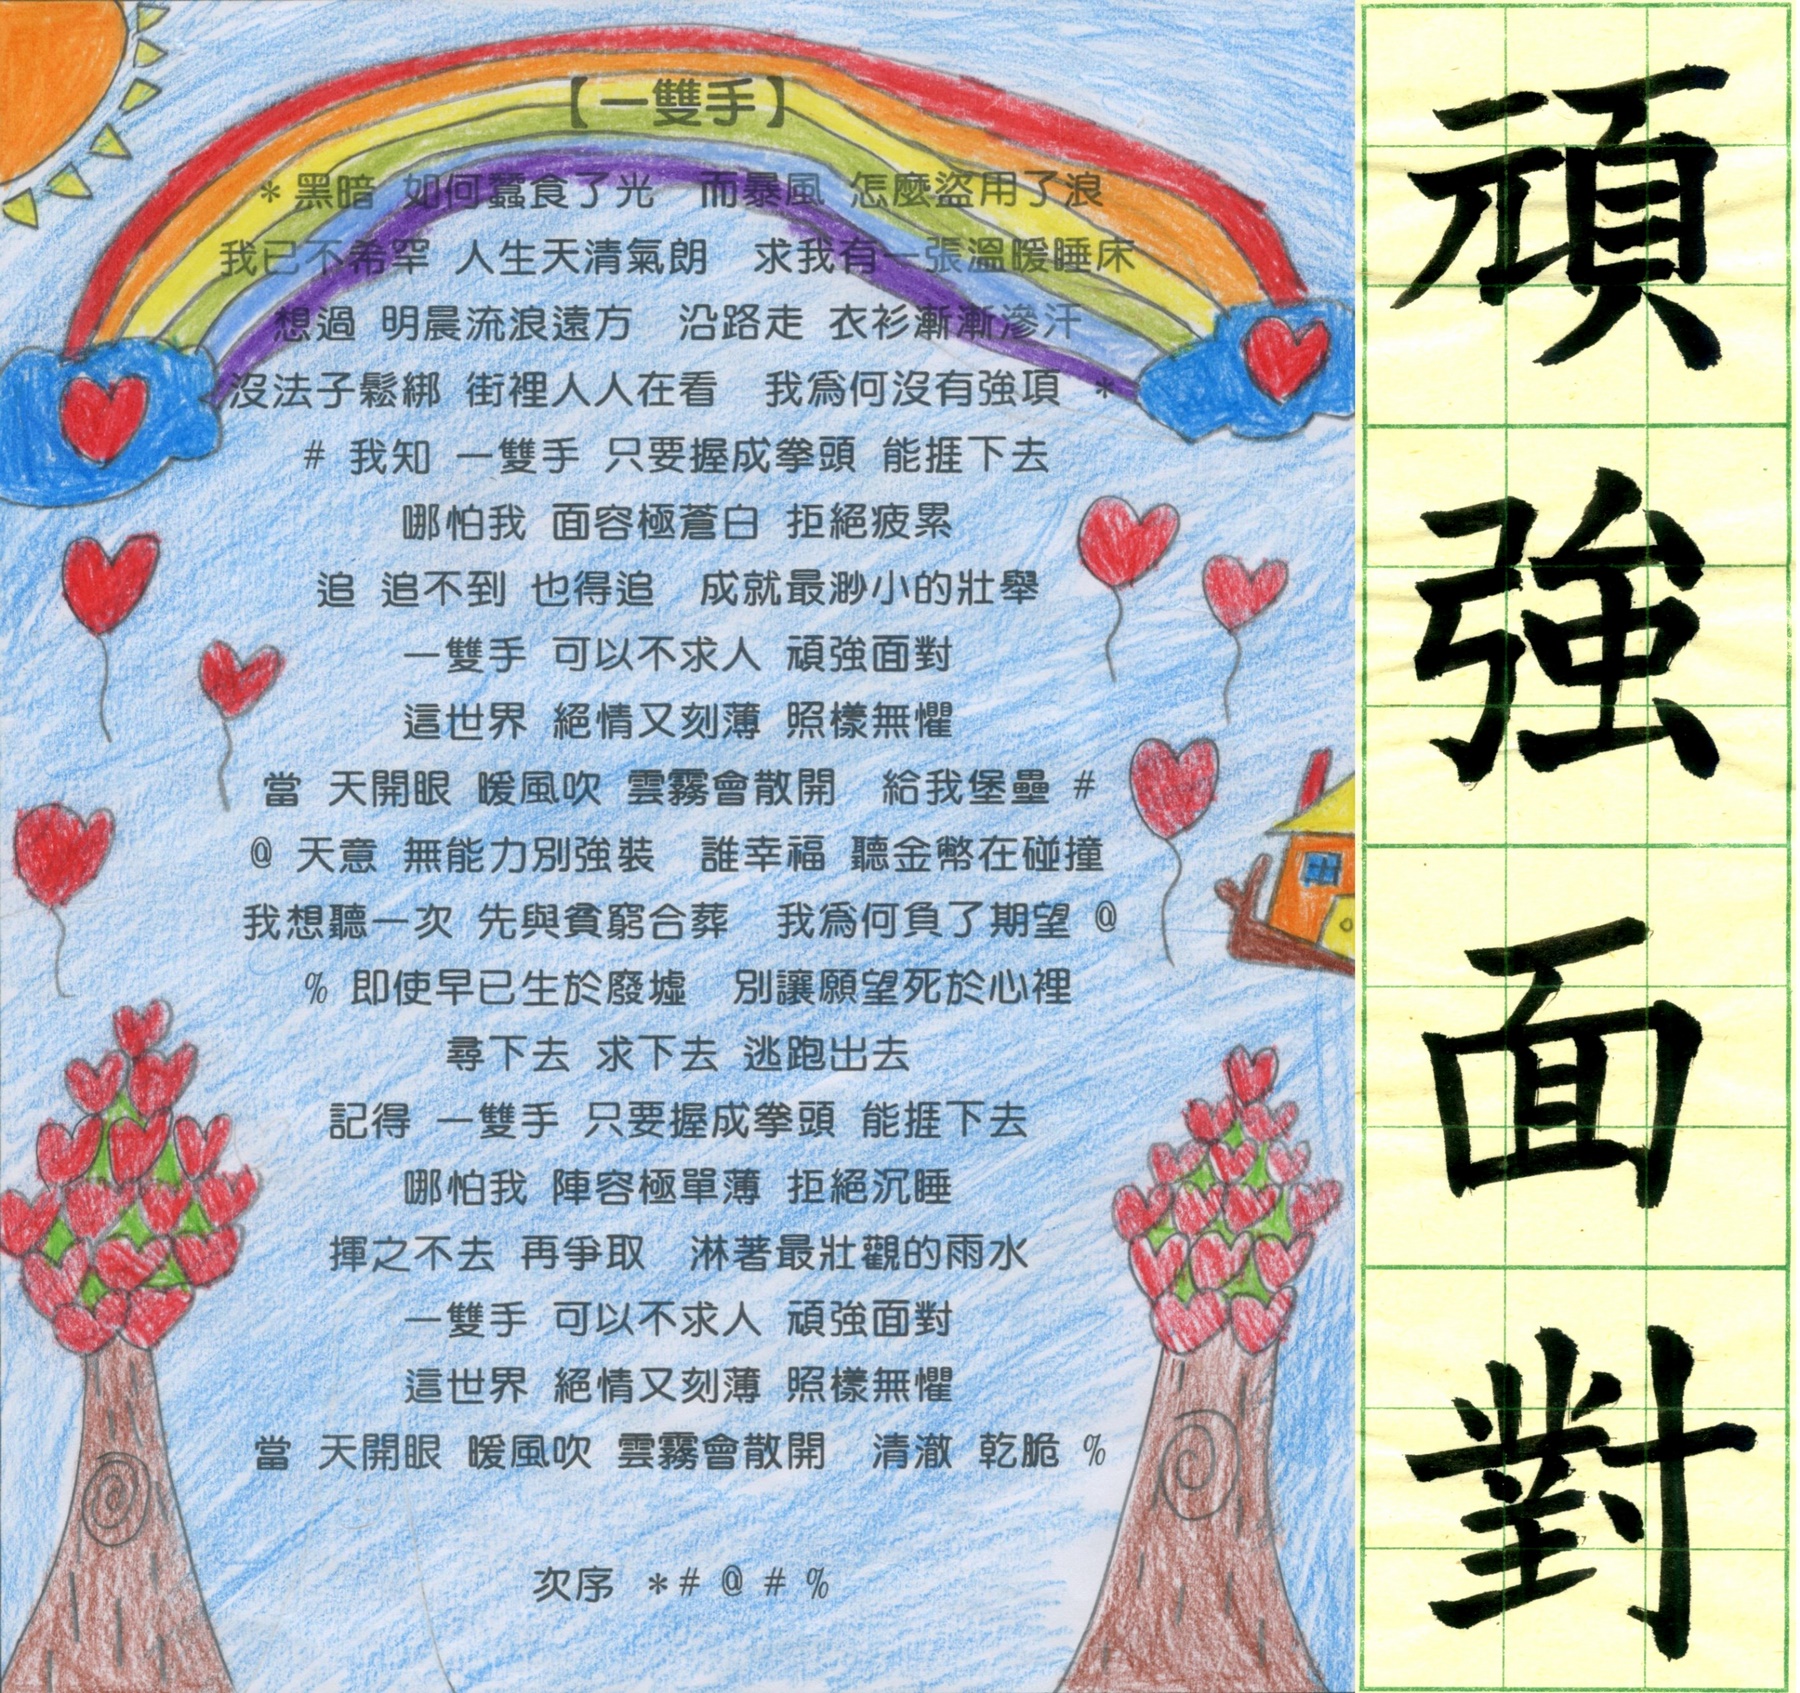 【一雙手】
* 黑暗 如何蠶食了光 而暴風 怎麼盜用了浪
我已不希罕 人生天清氣朗 求我有一張溫暖睡床
想過 明晨流浪遠方 沿路走 衣衫漸漸滲汗
沒法子鬆綁 街裡人人在看 我為何沒有強項 *
# 我知 一雙手 只要握成拳頭 能捱下去
哪怕我 面容極蒼白 拒絕疲累
追 追不到 也得追 成就最渺小的壯舉
一雙手 可以不求人 頑強面對
這世界 絕情又刻薄 照樣無懼
當 天開眼 暖風吹 雲霧會散開 給我堡壘 #
@ 天意 無能力別強裝 誰幸福 聽金幣在碰撞
我想聽一次 先與貧窮合葬 我為何負了期望 @
% 即使早已生於廢墟 別讓願望死於心裡
尋下去 求下去 逃跑出去
記得 一雙手 只要握成拳頭 能捱下去
哪怕我 陣容極單薄 拒絕沉睡
揮之不去 再爭取 淋著最壯觀的雨水
一雙手 可以不求人 頑強面對
這世界 絕情又刻薄 照樣無懼
當 天開眼 暖風吹 雲霧會散開 清澈 乾脆 %
次序 * # @ # %
頑強面對